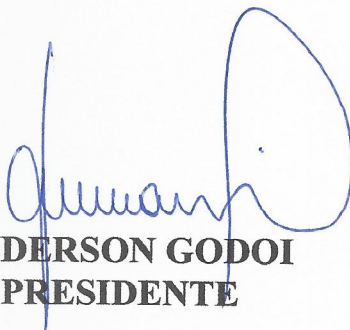 DERSON GODOI
PRESIDENTE